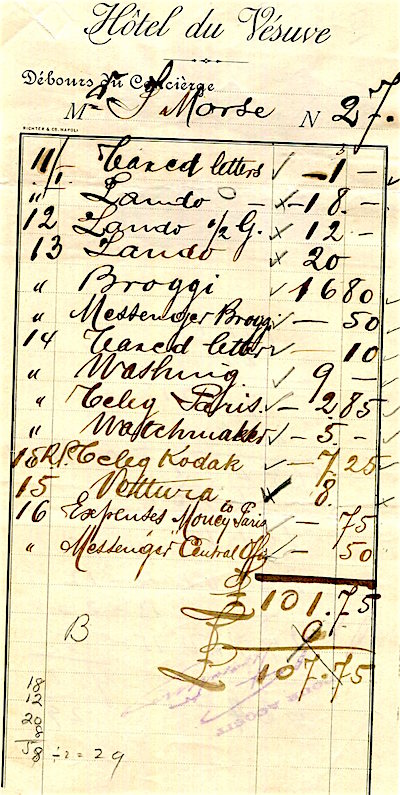 Hôtel du Vésuve
Débours du Concièrge
Mr S Morse N 27.
RICHTER & CO. NAPOLI
11/1 Taxed letters - 1 -
" Lando - 18. -
12 Lando 1/2 G. 12 -
13 Lando 20
" Broggi 16 80
" Messenger Broggi - 50
14 Taxed letter - 10
" Washing 9 -
" Teleg Paris. - 2.85
" Watchmaker - 5. -
15 R.P. Teleg Kodak - 7.25
15 Vettura 8.
16 Expenses Money to Paris - 75
" Messenger Central Offi - 50
£ 101.75
6
£ 107.75
B
18
12
20
8
58 ÷ 2 = 29